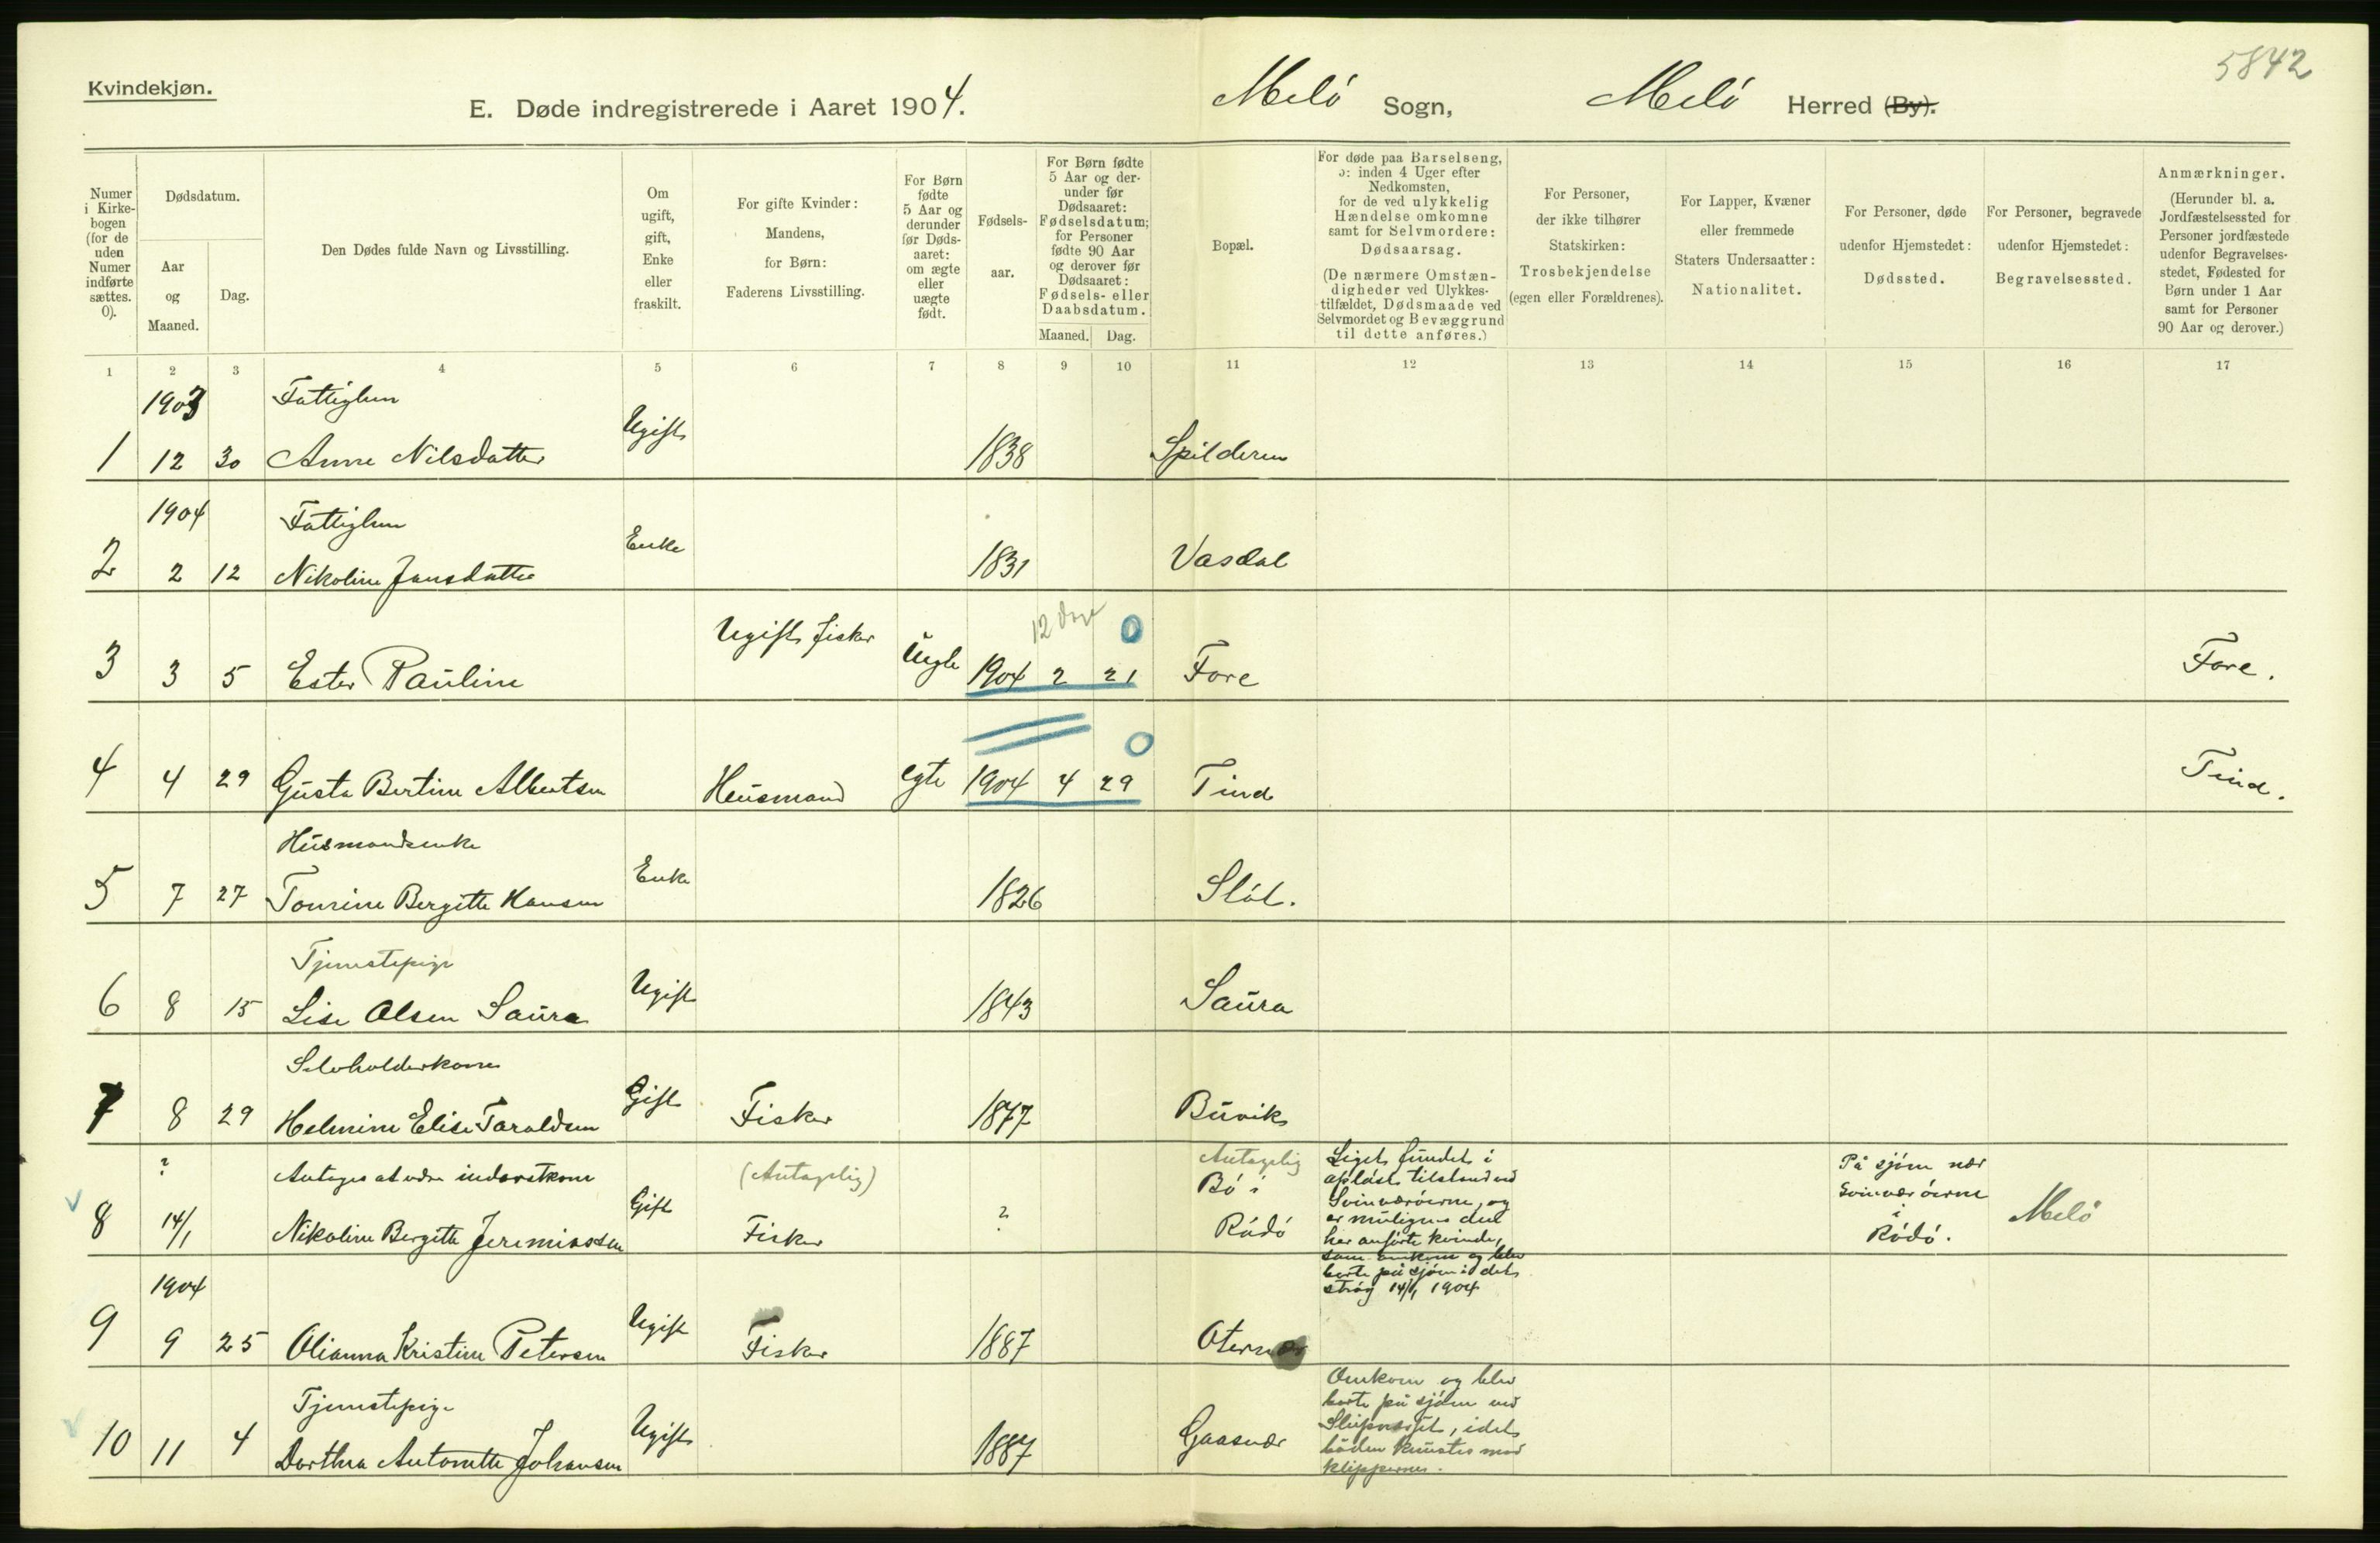 5842
Kvindekjøn.
E. Døde indregistrerede i Aaret 1904.
Melö Sogn, Melö Herred (By).
Numer
i Kirke-
bogen
(for de
uden
Numer
indførte
sættes.
0).
Dødsdatum.
Aar
og
Maaned.
Dag.
Den Dødes fulde Navn og Livsstilling.
Om
ugift,
gift,
Enke
eller
fraskilt.
For gifte Kvinder:
Mandens,
for Børn:
Faderens Livsstilling.
For Børn
fødte
5 Aar og
derunder
før Døds-
aaret:
om ægte
eller
uægte
født.
Fødsels-
aar.
For Børn fødte
5 Aar og der-
under før
Dødsaaret:
Fødselsdatum;
for Personer
fødte 90 Aar
og derover før
Dødsaaret:
Fødsels- eller
Daabsdatum.
Maaned. Dag.
Bopæl.
For døde paa Barselseng,
ɔ: inden 4 Uger efter
Nedkomsten,
for de ved ulykkelig
Hændelse omkomne
samt for Selvmordere:
Dødsaarsag.
(De nærmere Omstæn-
digheder ved Ulykkes-
tilfældet, Dødsmaade ved
Selvmordet og Bevæggrund
til dette anføres.)
For Personer,
der ikke tilhører
Statskirken:
Trosbekjendelse
(egen eller Forældrenes).
For Lapper, Kvæner
eller fremmede
Staters Undersaatter:
Nationalitet.
For Personer, døde
udenfor Hjemstedet:
Dødssted.
For Personer, begravede
udenfor Hjemstedet:
Begravelsessted.
Anmærkninger.
(Herunder bl. a.
Jordfæstelsessted for
Personer jordfæstede
udenfor Begravelses-
stedet, Fødested for
Børn under 1 Aar
samt for Personer
90 Aar og derover.)
1 2 3 4 5 6 7 8 9 10 11 12 13 14 15 16 17
1903 Fattiglem
1 12 30 Anne Nilsdatter Ugift 1838 Spilderen
1904 Fattiglem
2 2 12 Nikoline Jansdatter Enke 1831 Vasdal
12 0
3 3 5 Ester Pauline Ugift fisker Uegte 1904 2 21 Fore Fore.
0
4 4 29 Gusta Bertine Albertsen Husmand egte 1904 4 29 Tind Tind.
Husmandsenke
5 7 27 Tomine Bergitte Hansen Enke 1826 Støt.
Tjenestepige
6 8 15 Lise Olsen Saura Ugift 1843 Saura
Selvholderkone
7 8 29 Helmine Elise Taraldsen Gift Fisker 1877 Buvik
? Antages at være inderstkone (Antagelig) Antagelig
8 14/1 Nikoline Bergitte Jeremiassen Gift Fisker ? Bö i
Rödö
Liget fundet i
opløst tilstand ved
Svinværöerne, og
er muligens den
her anførte kvinde,
som omkom og blev
borte på sjöen i det
strög 14/1 1904
På sjöen nær
Svinværöerne
i
Rödö.
Melö
1904
9 9 25 Olianna Kristine Petersen Ugift Fisker 1887 Oternær
Tjenestepige
10 11 4 Dorthea Antonette Johansen Ugift 1887 Gaasvær
Omkom og blev
borte på sjöen ved
idet
båden knustes mod
klipperne.